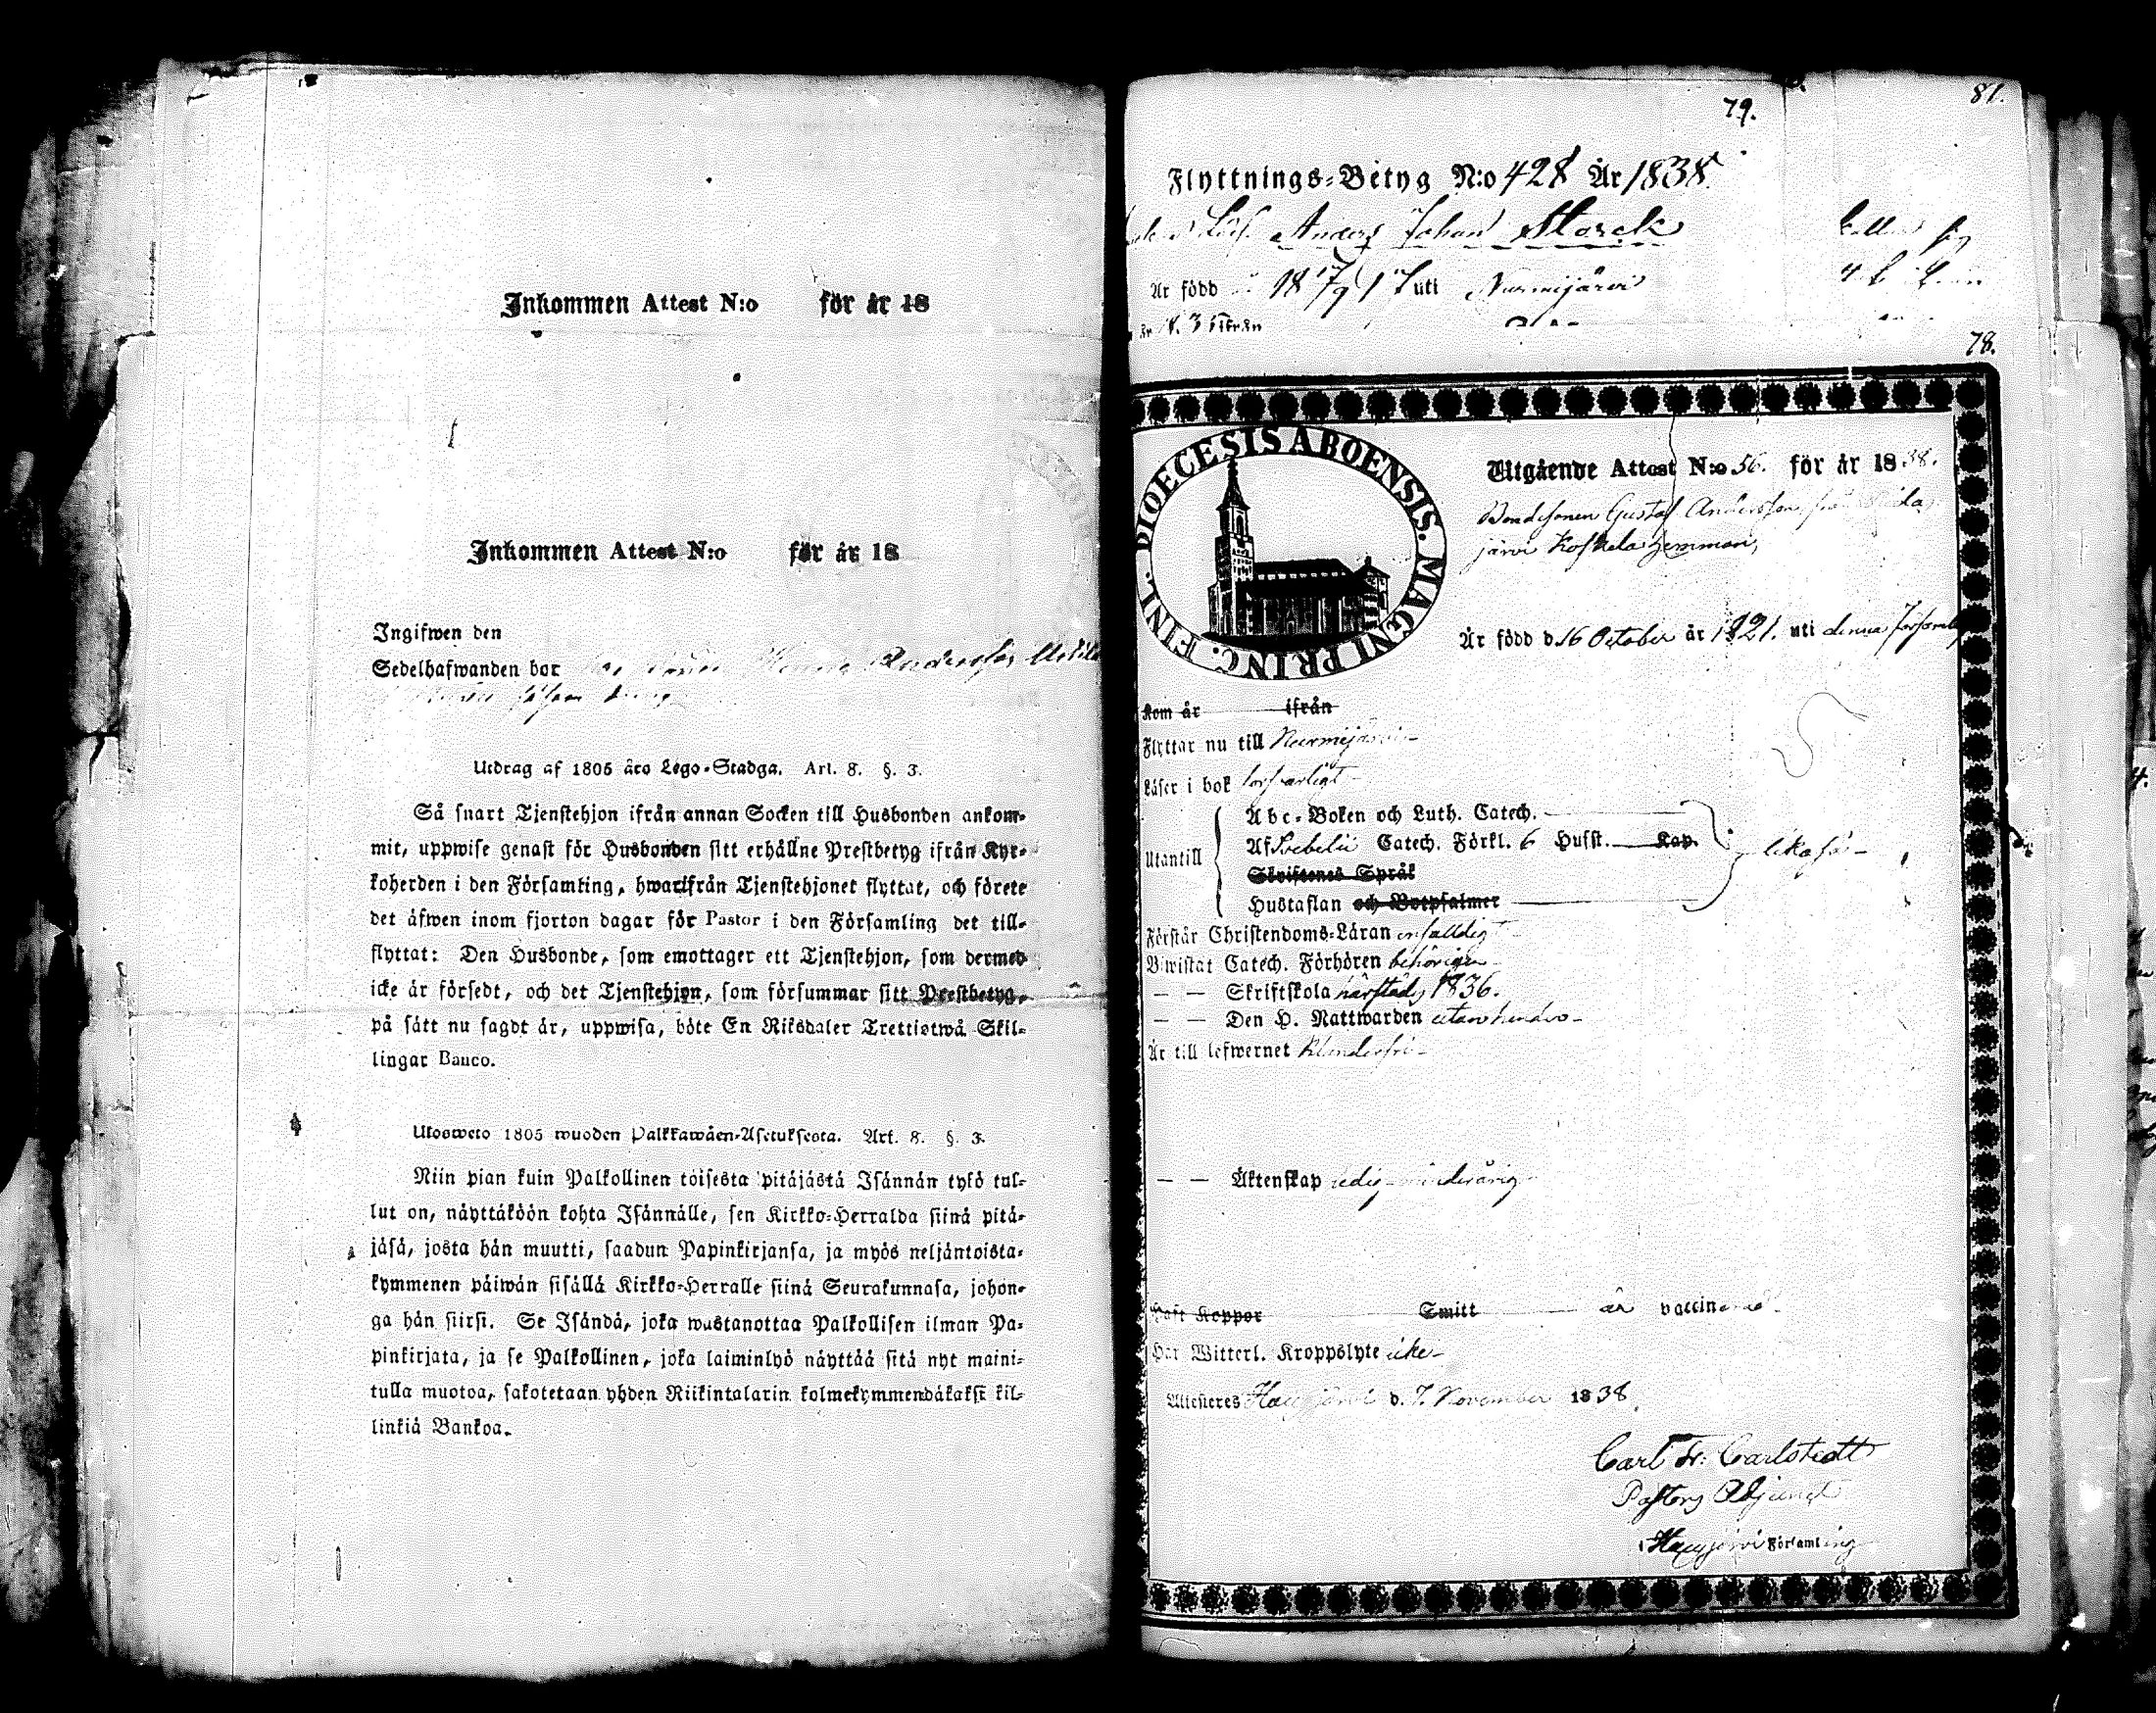 Inkommen Attest N:o för år 18
Inkommen Attest N:o för år 18
Ingifwen den
Sedelhafwanden bor
Utdrag af 1805 års Lego-Stadga. Art. 8. §. 3.
Så snart Tjenstehjon ifrån annan Socken till Husbonden ankom-
mit, uppwise genast för Husbonden sitt erhållne Prestbetyg ifrån Kyr-
koherden i den Församling, hwarifrån Tjenstehjonet flyttat, och förete
det äfwen inom fjorton dagar för Pastor i den Församling det till-
flyttat: Den Husbonde, som emottager ett Tjenstehjon, som dermed
icke är försedt, och det Tjenstehjon, som försummar sitt Prestbetyg,
på sätt nu sagdt är, uppwisa, böte En Riksdaler Trettiotwå Skil-
lingar Banco.
Ulosweto 1805 wuoden Palkkawäen-Asetuksesta. Art. 8. §. 3.
Niin pian kuin Palkollinen toisesta pitäjästä Isännän tykö tul-
lut on, näyttäköön kohta Isännälle, sen Kirkko-Herralda siinä pitä-
jäsä, josta hän muutti, saadun Papinkirjansa, ja myös neljäntoista-
kymmenen päiwän sisällä Kirkko-Herralle siinä Seurakunnasa, johon-
ga hän siirsi. Se Isändä, joka wastanottaa Palkollisen ilman Pa-
pinkirjata, ja se Palkollinen, joka laiminlyö näyttää sitä nyt maini-
tulla muotoa, sakotetaan yhden Riikintalarin kolmekymmendäkaksi kil-
linkiä Bankoa.
79. 81.
Flyttnings-Betyg N:o 428 År 1838
Anders Johan Storck
Är född 18 17/9 17 uti Nurmijärvi
78.
DIOECESIS ABOENSIS. MAGNI PRINC. FINL.
Utgående Attest N:o 56. för år 1838.
Bondesonen Gustaf Andersson från
järvi Koskela hemman,
Är född d. 16 October år 1821. uti denna Församling
Kom år ifrån
Flyttar nu till Nurmijärvi
Läser i bok försvarligt
Utantill
Abc-Boken och Luth. Catech.
Af Svebelii Catech. Förkl. 6 Hufst. Kap.
Skriftenes Språk
Hustaflan och Botpsalmer
likaså
Förstår Christendoms-Läran enfalldigt
Biwistat Catech. Förhören behörigen
— — Skriftskola härstädes 1836.
— — Den H. Nattwarden utan hinder
Är till lefwernet klanderfri
— — Äktenskap ledig minderårig
Haft Koppor Smitt är vaccinerad
Har Witterl. Kroppslyte icke
Attesteres Hausjärvi d. 7. November 1838.
Carl Fr: Carlstedt
Pastors Adjunct
i Hausjärvi Församling